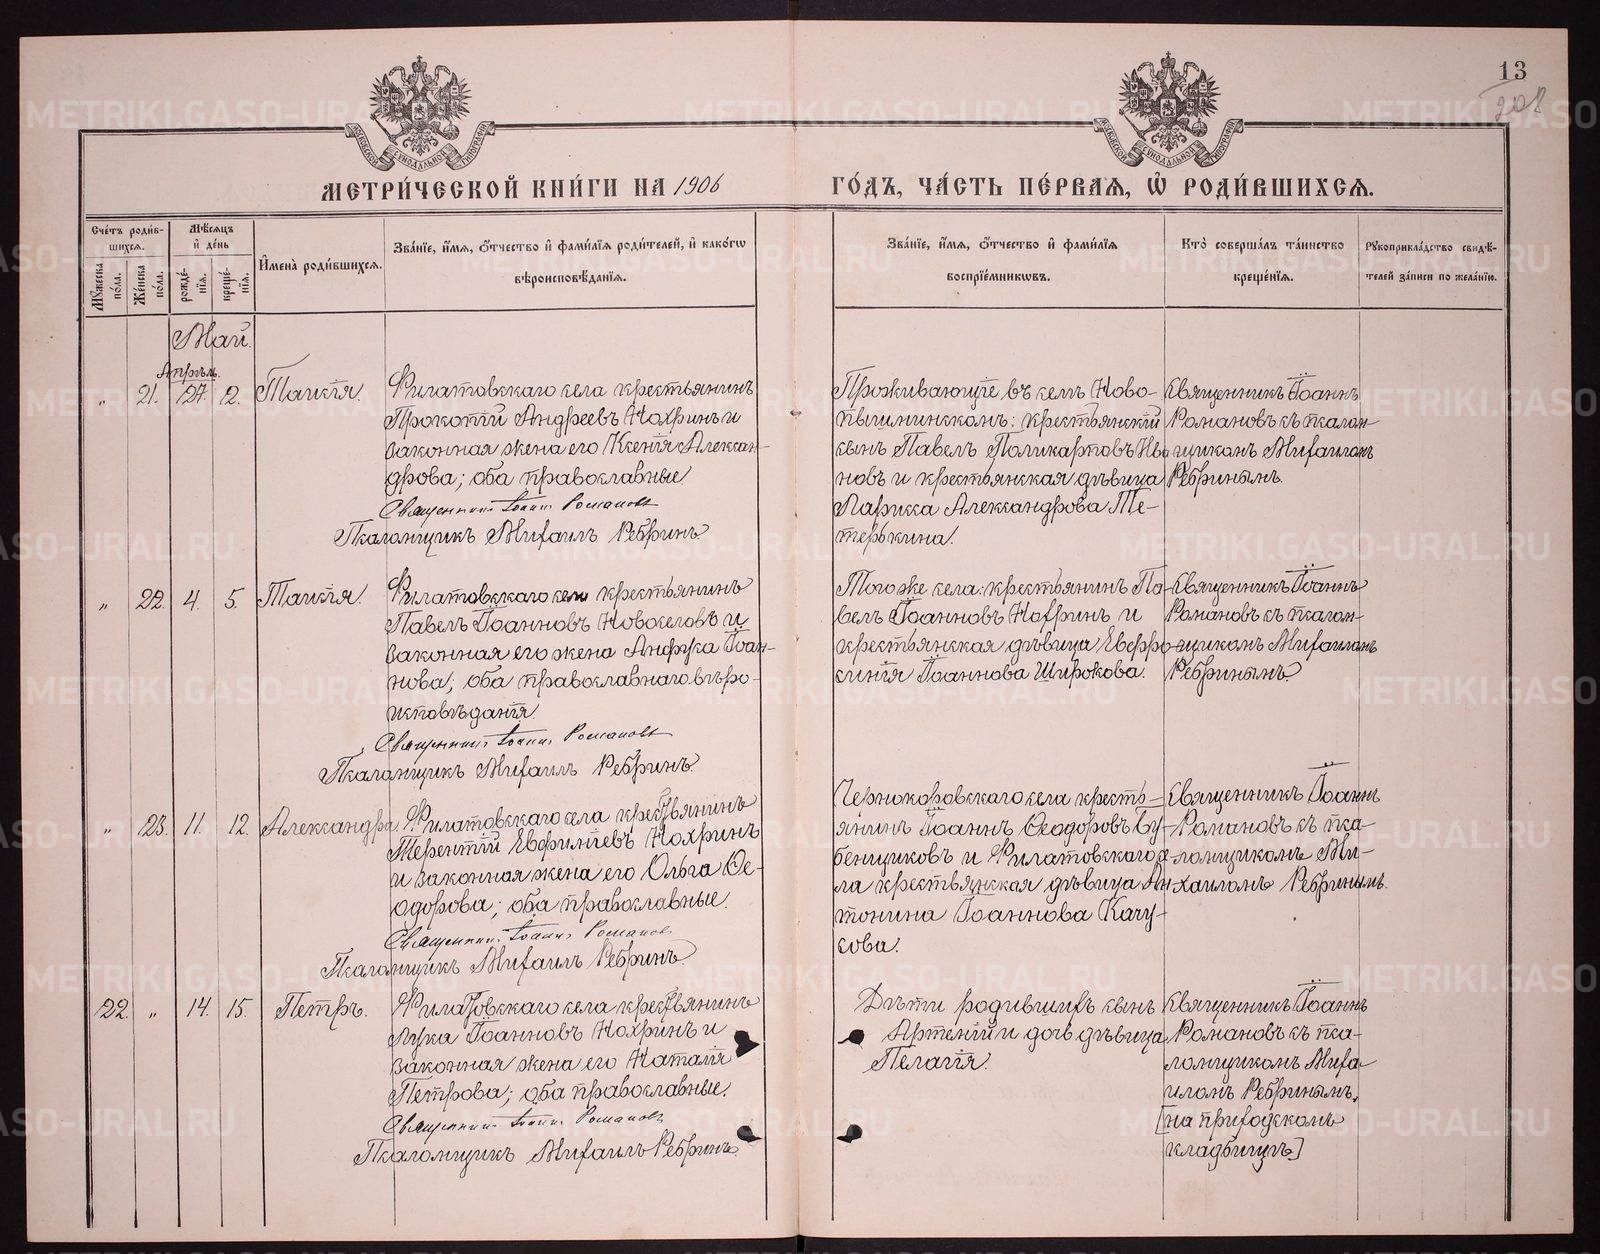 13
208
МОСКОВСКОЙ СѴНОДАЛЬНОЙ ТИПОГРАФІИ
МОСКОВСКОЙ СѴНОДАЛЬНОЙ ТИПОГРАФІИ
МЕТРИ́ЧЕСКОЙ КНИ́ГИ НА 1906
ГО́ДЪ, ЧА́СТЬ ПЕ́РВАѦ, Ѽ РОДИ́ВШИХСѦ.
Сче́тъ роди́в-
шихсѧ.
Мꙋ́жеска по́ла.
Же́нска по́ла.
Мѣ́сѧцъ
и҆ де́нь
рожде́-
нїѧ.
креще́-
нїѧ.
И҆мена̀ роди́вшихсѧ.
Зва́нїе, и҆́мѧ, ѻ҆́тчество и҆ фами́лїѧ роди́телей, и҆ како́гѡ
вѣроисповѣ́данїѧ.
Зва́нїе, и҆́мѧ, ѻ҆́тчество и҆ фами́лїѧ
воспрїе́мникѡвъ.
Кто̀ соверша́лъ та́инство
креще́нїѧ.
Рꙋкоприкла́дство свидѣ́-
телей за́писи по жела́нїю.
Май.
Апрѣль.
„ 21. 27. 2. Таисія.
Филатовскаго села крестьянинъ
Прокопій Андреевъ Нохринъ и
законная жена его Ксенія Алексан-
дрова; оба православные
Священникъ Іоаннъ Романовъ
Псаломщикъ Михаилъ Ребринъ
Проживающіе въ селѣ Ново-
пышминскомъ: крестьянскій
сынъ Павелъ Поликарповъ Ива
новъ и крестьянская дѣвица
Ларисса Александрова Те-
терькина.
Священникъ Іоаннъ
Романовъ съ псалом-
щикомъ Михаиломъ
Ребринымъ.
„ 22. 4. 5. Таисія.
Филатовскаго села крестьянинъ
Павелъ Іоанновъ Новоселовъ и
законная его жена Анфуса Іоан-
нова; оба православнаго вѣро-
исповѣданія.
Священникъ Іоаннъ Романовъ
Псаломщикъ Михаилъ Ребринъ.
Того же села: крестьянинъ Па
велъ Іоанновъ Нохринъ и
крестьянская дѣвица Евфро-
синія Іоаннова Широкова.
Священникъ Іоаннъ
Романовъ съ псалом-
щикомъ Михаиломъ
Ребринымъ.
„ 23. 11. 12. Александра.
Филатовскаго села крестьянинъ
Терентій Евфиміевъ Нохринъ
и законная жена его Ольга Ѳе-
одорова; оба православные.
Священникъ Іоаннъ Романовъ
Псаломщикъ Михаилъ Ребринъ.
Чернокоровскаго села кресть-
янинъ Іоаннъ Ѳеодоровъ Бу-
бенщиковъ и Филатовскаго се-
ла крестьянская дѣвица Ан
тонина Іоаннова Качу-
сова.
Священникъ Іоаннъ
Романовъ съ пса-
ломщикомъ Ми-
хаиломъ Ребринымъ.
22. „ 14. 15. Петръ.
Филатовскаго села крестьянинъ
Лука Іоанновъ Нохринъ и
законная жена его Наталія
Петрова; оба православные.
Священникъ Іоаннъ Романовъ
Псаломщикъ Михаилъ Ребринъ.
Дѣти родившихъ сынъ
Артемій и дочь дѣвица
Пелагія.
Священникъ Іоаннъ
Романовъ съ пса-
ломщикомъ Миха-
иломъ Ребринымъ.
[на приходскомъ
кладбищѣ]
METRIKI.GASO-URAL.RU